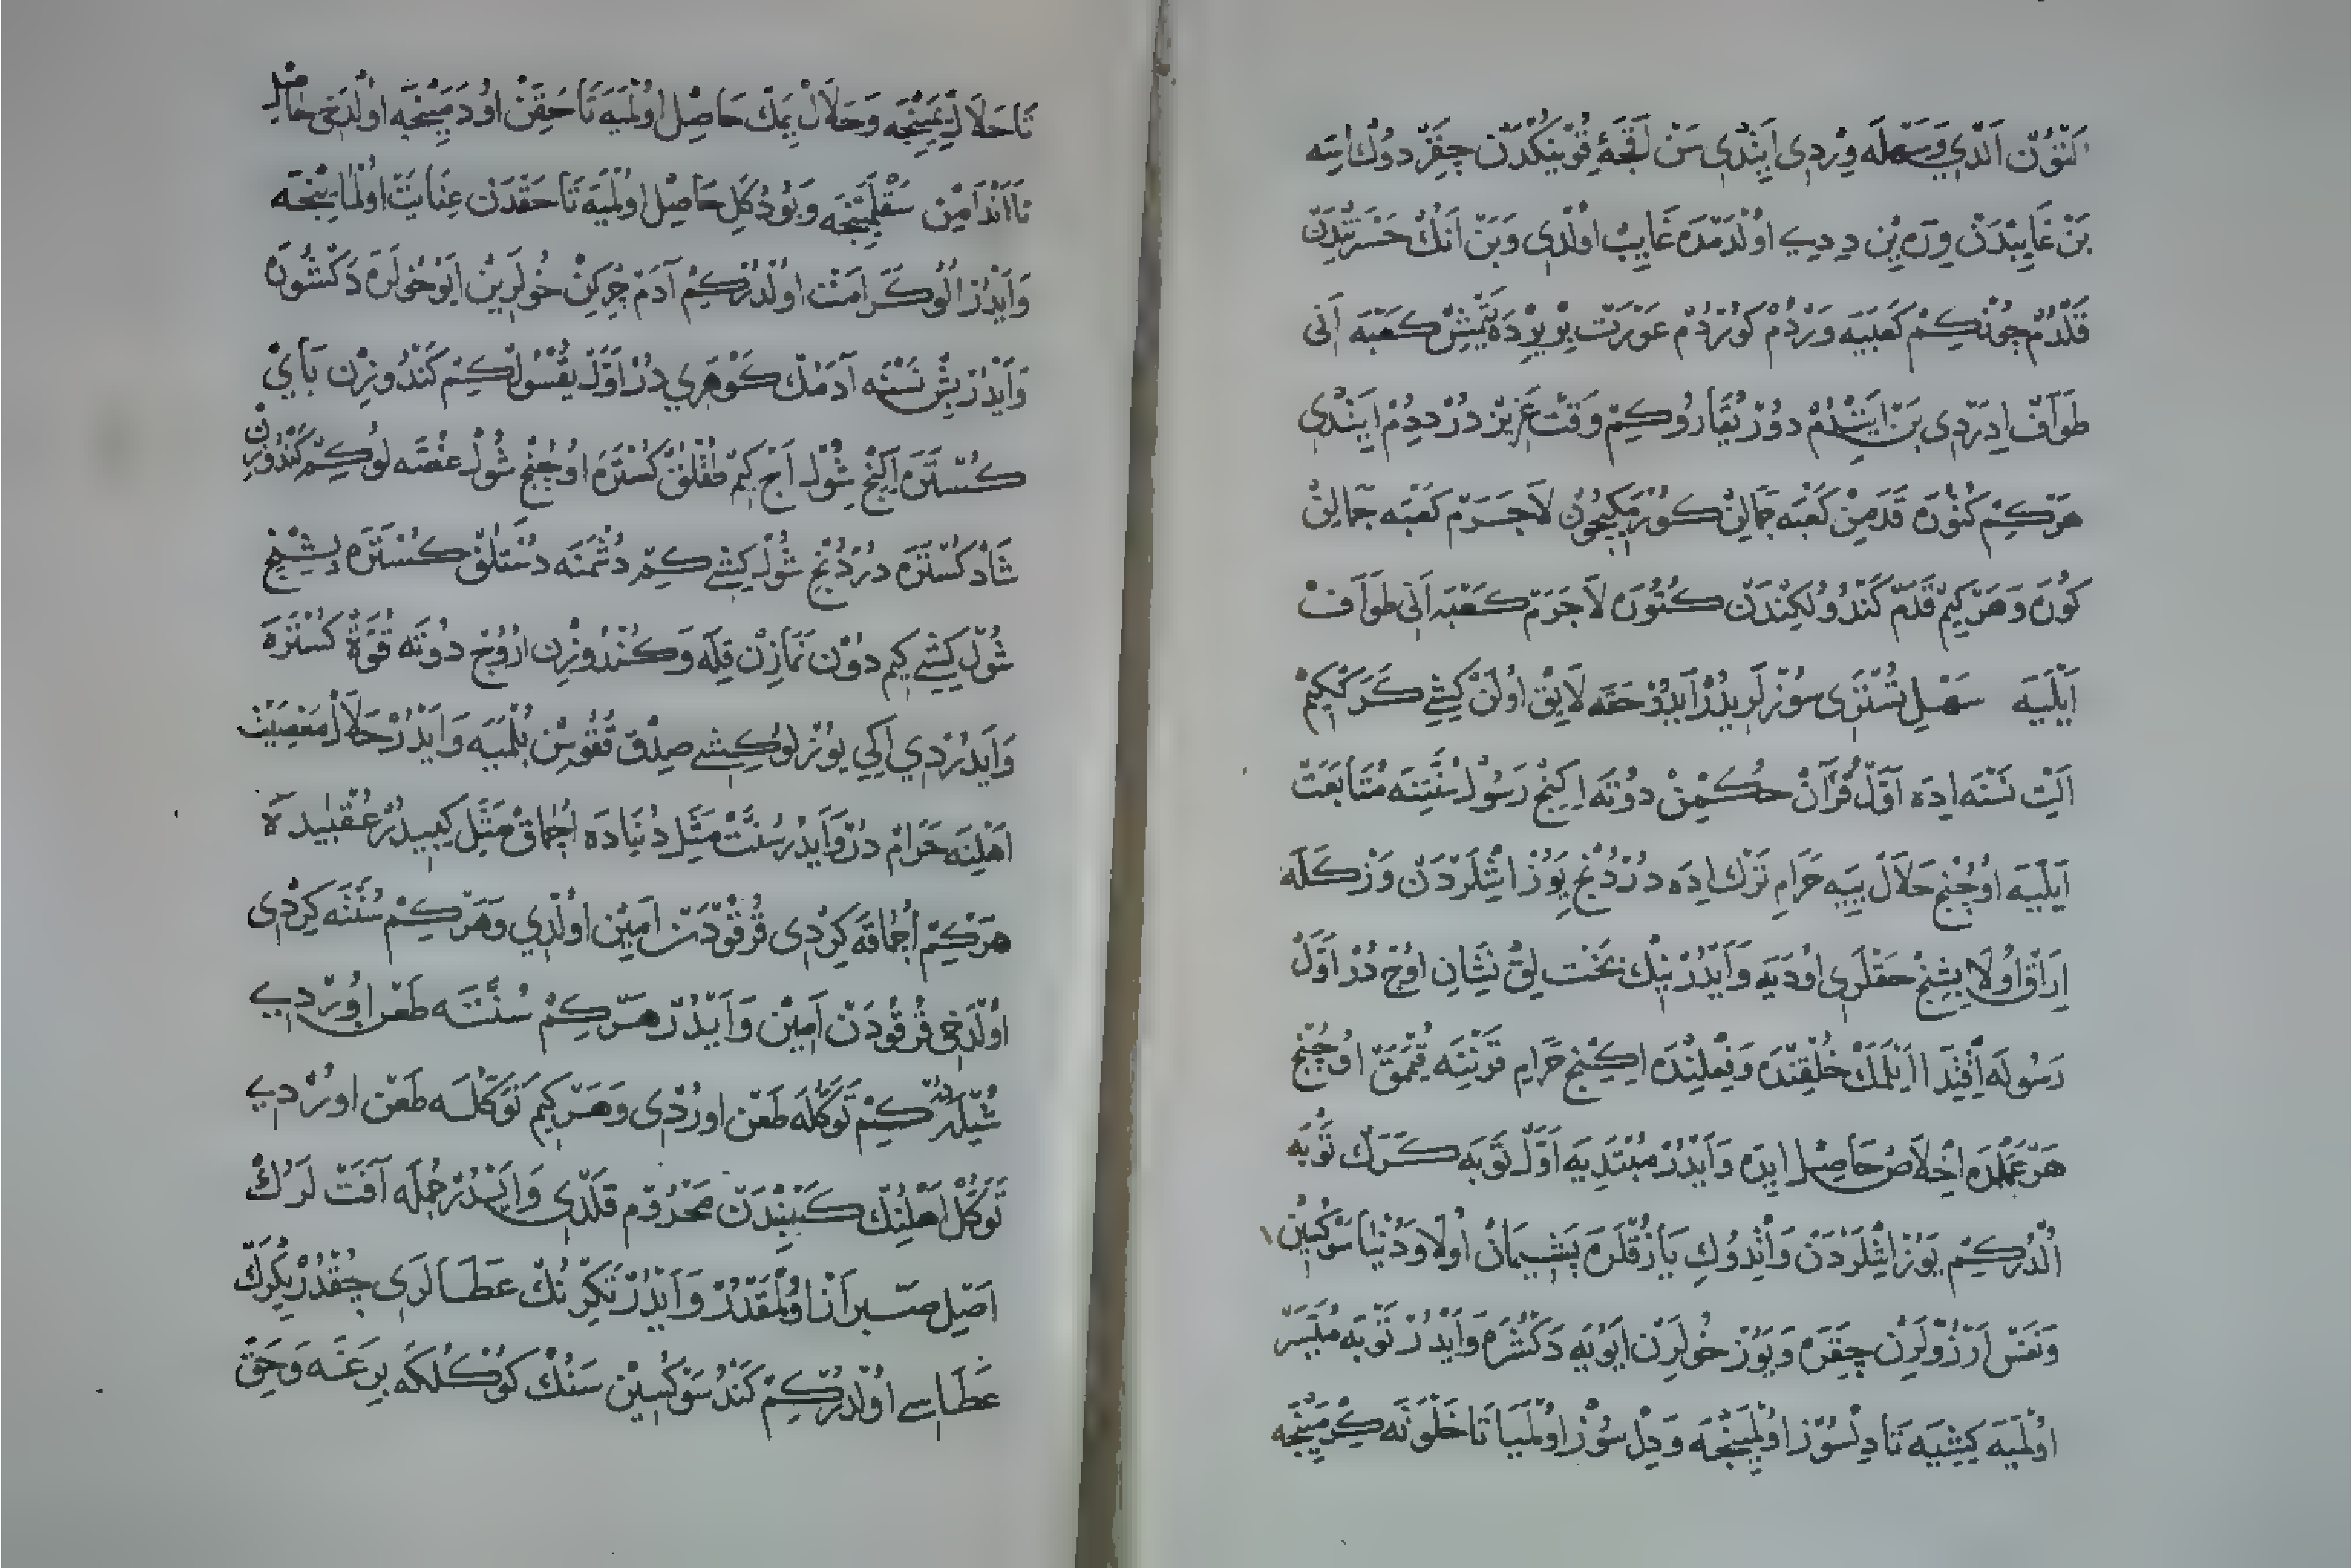 اَلتُوُن اَلْدِي وَسَهْلَه وِرْدِى اَيِتْدِى سَنْ اَقْجَهٔ قُوْيِنُكْدَنْ جِقَرْدُوكْ اِسَه
بَنْ غَايِبْدَنْ وِرَه يِنْ دِدِى اوُلْدَمْدَه غَايِبْ اوُلْدِى وَبَنْ اَنُكْ حَسْرَتِنْدَنْ
قَلْدُمْ جُونْكِمْ كَعْبَيَه وَرْدُمْ كُورْدُمْ عَوْرَتْ بِرْ يِرْدَه يَتْمِشْ كَعْبَه اَنِى
طَوَافْ اِدَرْدِى بَنْ اِيشِتْدُمْ دُورْ يُقَارُو كِمْ وَقْت عَزِيزْ دُرْ دِدُمْ اَيِتْدِى
هَرْ كِمْ كُتُورَه قَدَمِنْ كَعْبَه جَمَالِنْ كُورْمَكِيجُونْ لَاجَرَمْ كَعْبَه جَمَالِنْ
كُورَه وَهَرْ كِمْ قَدَمْ كَنْدُولِكِنْدَنْ كُتُورَه لَاجَرَمْ كَعْبَه اَنِى طَوَافْ
اَيْلَيَه سَهْلِ تُسْتَرِى سُوزْلَرِيدُرْ اَيْدُرْ حَقَّه لَايِقْ اوُلَنْ كِشِى كَرَكْكِمْ
اَلْتِ نَسْنَه اِدَه اَوَّلْ قُرْآنْ حُكْمِنْ دُوتَه اِكِنْجِ رَسُولْ سُنَّتِنَه مُتَابَعَتْ
اَيْلَيَه اوُجُنْجِ حَلَالْ يِيَه حَرَامِ تَرْك اِدَه دُرْدُنْجِ يَوُزْ اِشْلَرْدَنْ وَزْ كَلَه
اِرَاقْ اوُلَا بِشِنْجِ حَقْلَرِى اوُدَيَه وَاَيْدُرْ نِيكْ بَخْت لِقْ نِشَانِ اوُجْ دُرْ اَوَّلْ
رَسُولَه اِقْتِدَا اَيْلَمَكْ خُلْقِنْدَه وَفِعْلِنْدَه اِكِنْجِ حَرَامِ قَرْنِنَه قُيْمَمَقْ اوُجُنْجِ
هَرْ عَمَلْدَه اِخْلَاصْ حَاصِلْ اِيدَه وَاَيْدُرْ مُبْتَدِيَه اَوَّلْ تَوْبَه كَرَكْ تَوْبَه
اُلْدُرْ كِمْ يَوُزْ اِشْلَرْدَنْ وَاِتْدُوكِ يَازُقْلَرَه پَشِيمَانْ اوُلَا وَدُنْيَا سَوْكُسِينْ
وَنَفَسْ اَرْزُولَرِنْ جِقَرَه وَيَوُزْ خُولَرِنْ اَيُويَه دَكْشُرَه وَاَيْدُرْ تَوْبَه مُيَسَّرْ
اوُلْمَيَه كِشِيَه تَا دِلْسُوزْ اوُلْمَيِنْجَه وَدِلْ سُوزْ اوُلْمَيَا تَا خَلْوَتَه كِرْمَيِنْجَه
تَا حَلَالْ يِمَيِنْجَه وَحَلَالْ يِمَكْ حَاصِلْ اوُلْمَيَه تَا حَقِّنْ اوُدَمَيِنْجَه اوُلْدَخِى حَاصِلْ
تَا اَنْدَامِنْ سَقْلَمَيِنْجَه وَبُودُكَلِ حَاصِلْ اوُلْمَيَه تَا حَقْدَنْ عِنَايَتْ اوُلْمَايِنْجَه
وَاَيْدُرْ الُوكَرَامَتْ اوُلْدُرْ كِمْ آدَمْ جِرْكِنْ خُولَرِينْ اَيُو خُولَرَه دَكْشُورَه
وَاَيْدُرْ بِشْ نَسْنَه آدَمُكْ كَوْهَرِي دُرْ اَوَّلْ يُقْسُولْ كِمْ كَنْدُوزِنْ بَاىْ
كُسْتَرَه اِكِنْجِ شُولْ اَجْ كِمْ طُقْلُقْ كُسْتَرَه اوُجُنْجِ شُولْ غُصَّه لُو كِمْ كَنْدُوزِنْ
شَاذْ كُسْتَرَه دُرْدُنْجِ شُولْ كِشِى كِمْ دُشْمَنَه دُسْتلُقْ كُسْتَرَه بِشِنْجِ
شُولْ كِشِى كِمْ دُونْ نَمَازِنْ قِلَه وَكُنْدُوزِنْ اُرُوجْ دُوتَه قُوَّةْ كُسْتَرَه
وَاَيْدُرْدِي اِكِي يُوزْلُو كِشِى صِدْقْ قُقُوسِنْ بُلْمَيَه وَاَيْدُرْ حَلَالْ مَعْصِيَتْ
اَهْلِنَه حَرَامْ دُرْ وَاَيْدُرْ سُنَّتْ مَثَلِ دُنْيَادَه اُجْمَاقْ مَثَلِ كِبِيدُرْ عُقْبَيدَ لَا
هَرْ كِمْ اُجْمَاقَه كِرْدِى قُرْقُودَنْ اَمِينْ اوُلْدِي وَهَرْ كِمْ سُنَّتَه كِرْدِى
اوُلْدَخِى قُرْقُودَنْ اَمِينْ وَاَيْدُرْ هَرْ كِمْ سُنَّتَه طَعْن اوُرْدِى
شُيْلَدُرْ كِمْ تَوَكُّلَه طَعْن اوُرْدِى وَهَرْ كِمْ تَوَكُّلَه طَعْن اوُرْدِى
تَوَكُّلْ اَهْلِنُكْ كَسْبِنْدَنْ مَحْرُومْ قَلْدِى وَاَيْدُرْ جُمْلَه آفَتْ لَرُكْ
اَصْلِ صَبْر اَزْ اوُلْمَقْدُرْ وَاَيْدُرْ تَكْرِنُكْ عَطَالَرِى جُقْدُرْ يِكْرَكْ
عَطَاسِى اوُلْدُرْ كِمْ كَنْدُ سَوْكُسِينْ سَنُكْ كُوكْلُكَه بِرَغَه وَحَقْ